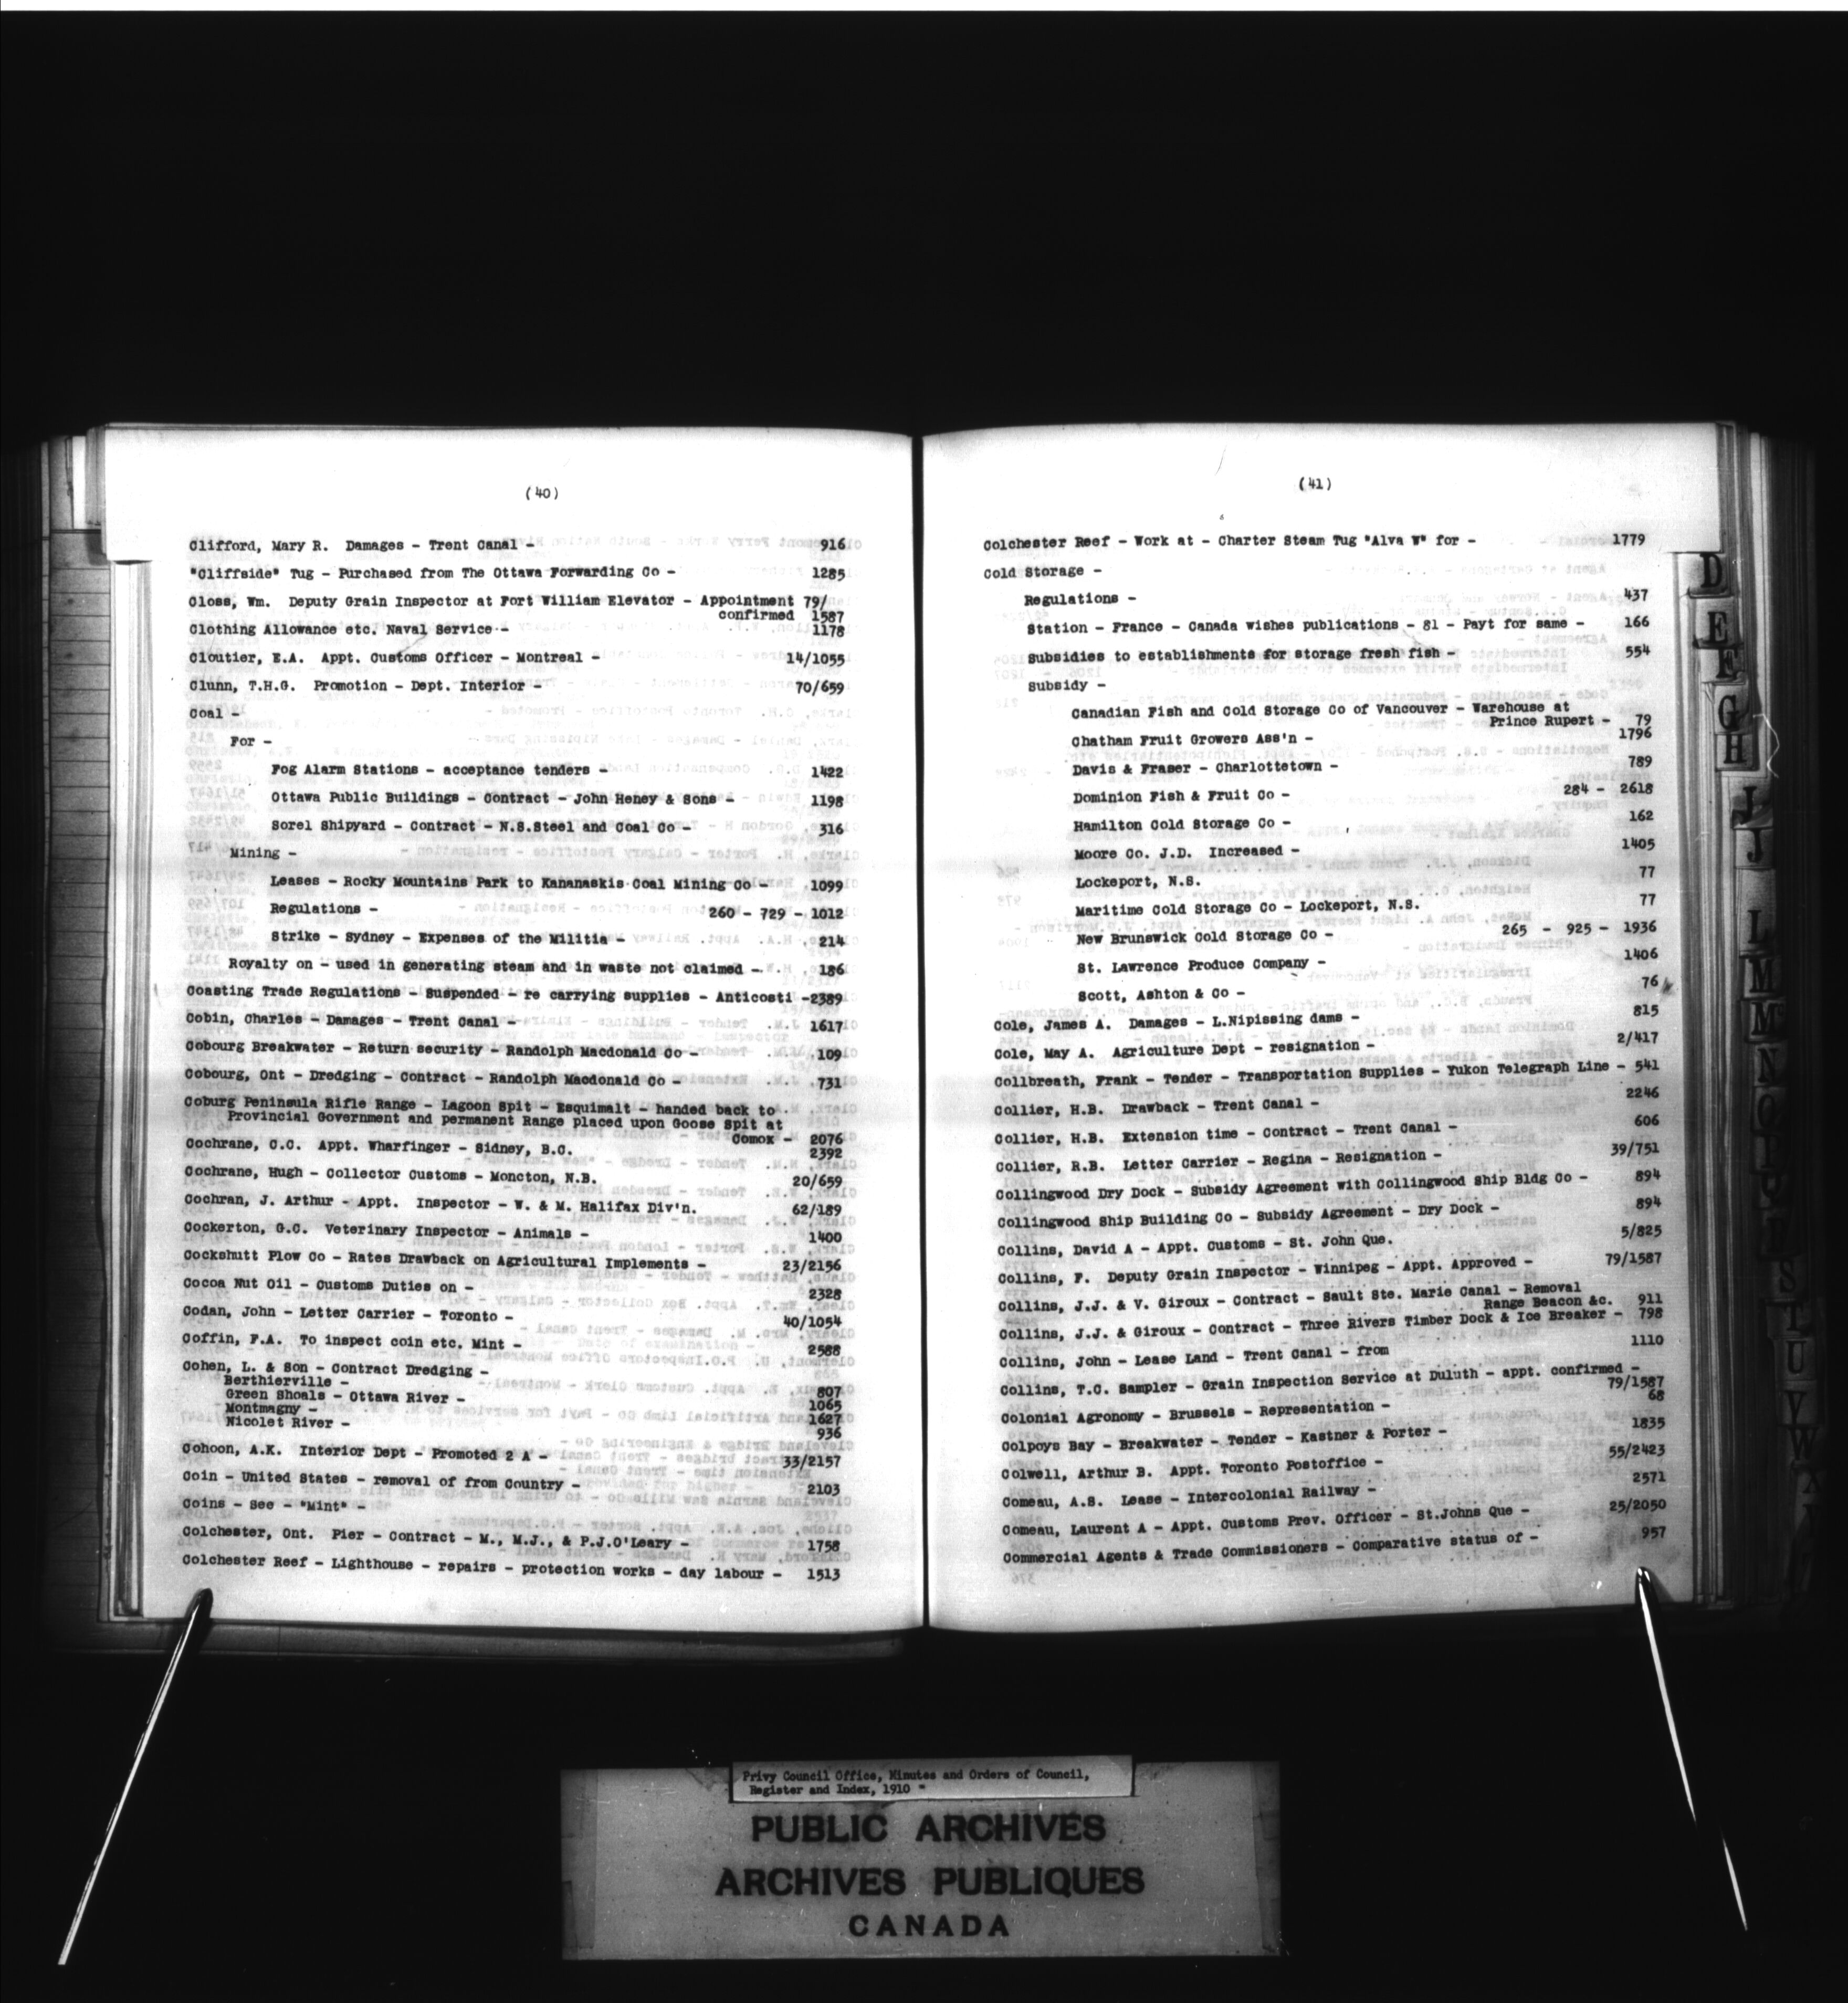 (40)
Clifford, Mary R. Damages - Trent Canal - 916
"Cliffside" Tug - Purchased from The Ottawa Forwarding Co - 1285
Closs, Wm. Deputy Grain Inspector at Fort William Elevator - Appointment 79/
confirmed 1587
Clothing Allowance etc. Naval Service - 1178
Cloutier, E.A. Appt. Customs Officer - Montreal - 14/1055
Clunn, T.H.G. Promotion - Dept. Interior - 70/659
Coal -
For -
Fog Alarm Stations - acceptance tenders - 1422
Ottawa Public Buildings - Contract - John Heney & Sons - 1198
Sorel Shipyard - Contract - N.S.Steel and Coal Co - 316
Mining -
Leases - Rocky Mountains Park to Kananaskis Coal Mining Co - 1099
Regulations - 260 - 729 - 1012
Strike - Sydney - Expenses of the Militia - 214
Royalty on - used in generating steam and in waste not claimed - 186
Coasting Trade Regulations - Suspended - re carrying supplies - Anticosti -2389
Cobin, Charles - Damages - Trent Canal - 1617
Cobourg Breakwater - Return security - Randolph Macdonald Co - 109
Cobourg, Ont - Dredging - Contract - Randolph Macdonald Co - 731
Coburg Peninsula Rifle Range - Lagoon Spit - Esquimalt - handed back to
Provincial Government and permanent Range placed upon Goose Spit at
Comox - 2076
Cochrane, C.C. Appt. Wharfinger - Sidney, B.C. 2392
Cochrane, Hugh - Collector Customs - Moncton, N.B. 20/659
Cochran, J. Arthur - Appt. Inspector - W. & M. Halifax Div'n. 62/189
Cockerton, G.C. Veterinary Inspector - Animals - 1400
Cockshutt Plow Co - Rates Drawback on Agricultural Implements - 23/2156
Cocoa Nut Oil - Customs Duties on - 2328
Codan, John - Letter Carrier - Toronto - 40/1054
Coffin, F.A. To inspect coin etc. Mint - 2588
Cohen, L. & Son - Contract Dredging -
Berthierville - 807
Green Shoals - Ottawa River - 1065
Montmagny - 1627
Nicolet River - 936
Cohoon, A.K. Interior Dept - Promoted 2 A - 33/2157
Coin - United States - removal of from Country - 2103
Coins - See - "Mint" -
Colchester, Ont. Pier - Contract - M., M.J., & P.J.O'Leary - 1758
Colchester Reef - Lighthouse - repairs - protection works - day labour - 1513
(41)
Colchester Reef - Work at - Charter Steam Tug "Alva W" for - 1779
Cold Storage -
Regulations - 437
Station - France - Canada wishes publications - 81 - Payt for same - 166
Subsidies to establishments for storage fresh fish - 554
Subsidy -
Canadian Fish and Cold Storage Co of Vancouver - Warehouse at
Prince Rupert - 79
Chatham Fruit Growers Ass'n - 1796
Davis & Fraser - Charlottetown - 789
Dominion Fish & Fruit Co - 284 - 2618
Hamilton Cold Storage Co - 162
Moore Co. J.D. Increased - 1405
Lockeport, N.S. 77
Maritime Cold Storage Co - Lockeport, N.S. 77
New Brunswick Cold Storage Co - 265 - 925 - 1936
St. Lawrence Produce Company - 1406
Scott, Ashton & Co - 76
Cole, James A. Damages - L.Nipissing dams - 815
Cole, May A. Agriculture Dept - resignation - 2/417
Collbreath, Frank - Tender - Transportation Supplies - Yukon Telegraph Line - 541
Collier, H.B. Drawback - Trent Canal - 2246
Collier, H.B. Extension time - Contract - Trent Canal - 606
Collier, R.B. Letter Carrier - Regina - Resignation - 39/751
Collingwood Dry Dock - Subsidy Agreement with Collingwood Ship Bldg Co - 894
Collingwood Ship Building Co - Subsidy Agreement - Dry Dock - 894
Collins, David A - Appt. Customs - St. John Que. 5/825
Collins, F. Deputy Grain Inspector - Winnipeg - Appt. Approved - 79/1587
Collins, J.J. & V. Giroux - Contract - Sault Ste. Marie Canal - Removal
Range Beacon &c. 911
Collins, J.J. & Giroux - Contract - Three Rivers Timber Dock & Ice Breaker - 798
Collins, John - Lease Land - Trent Canal - from 1110
Collins, T.C. Sampler - Grain Inspection Service at Duluth - appt. confirmed -
79/1587
Colonial Agronomy - Brussels - Representation - 68
Colpoys Bay - Breakwater - Tender - Kastner & Porter - 1835
Colwell, Arthur B. Appt. Toronto Postoffice - 55/2423
Comeau, A.S. Lease - Intercolonial Railway - 2571
Comeau, Laurent A - Appt. Customs Prev. Officer - St.Johns Que - 25/2050
Commercial Agents & Trade Commissioners - Comparative status of - 957
D
E
F
G
H
J
L
M
N
O
S
T
U
V
W
X
Privy Council Office, Minutes and Orders of Council,
Register and Index, 1910 "
PUBLIC ARCHIVES
ARCHIVES PUBLIQUES
CANADA